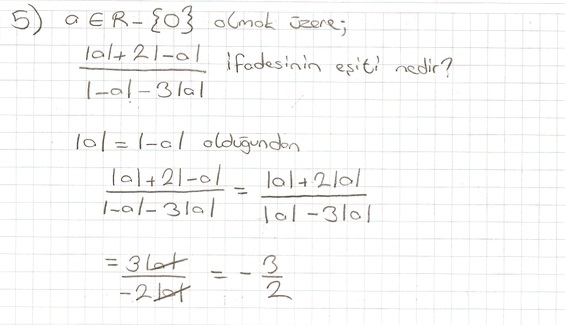 5) a ∈ R - {0} olmak üzere;
|a| + 2|-a| / |-a| - 3|a| ifadesinin eşiti nedir?
|a| = |-a| olduğundan
|a| + 2|-a| / |-a| - 3|a| = |a| + 2|a| / |a| - 3|a|
= 3|a| / -2|a| = - 3/2